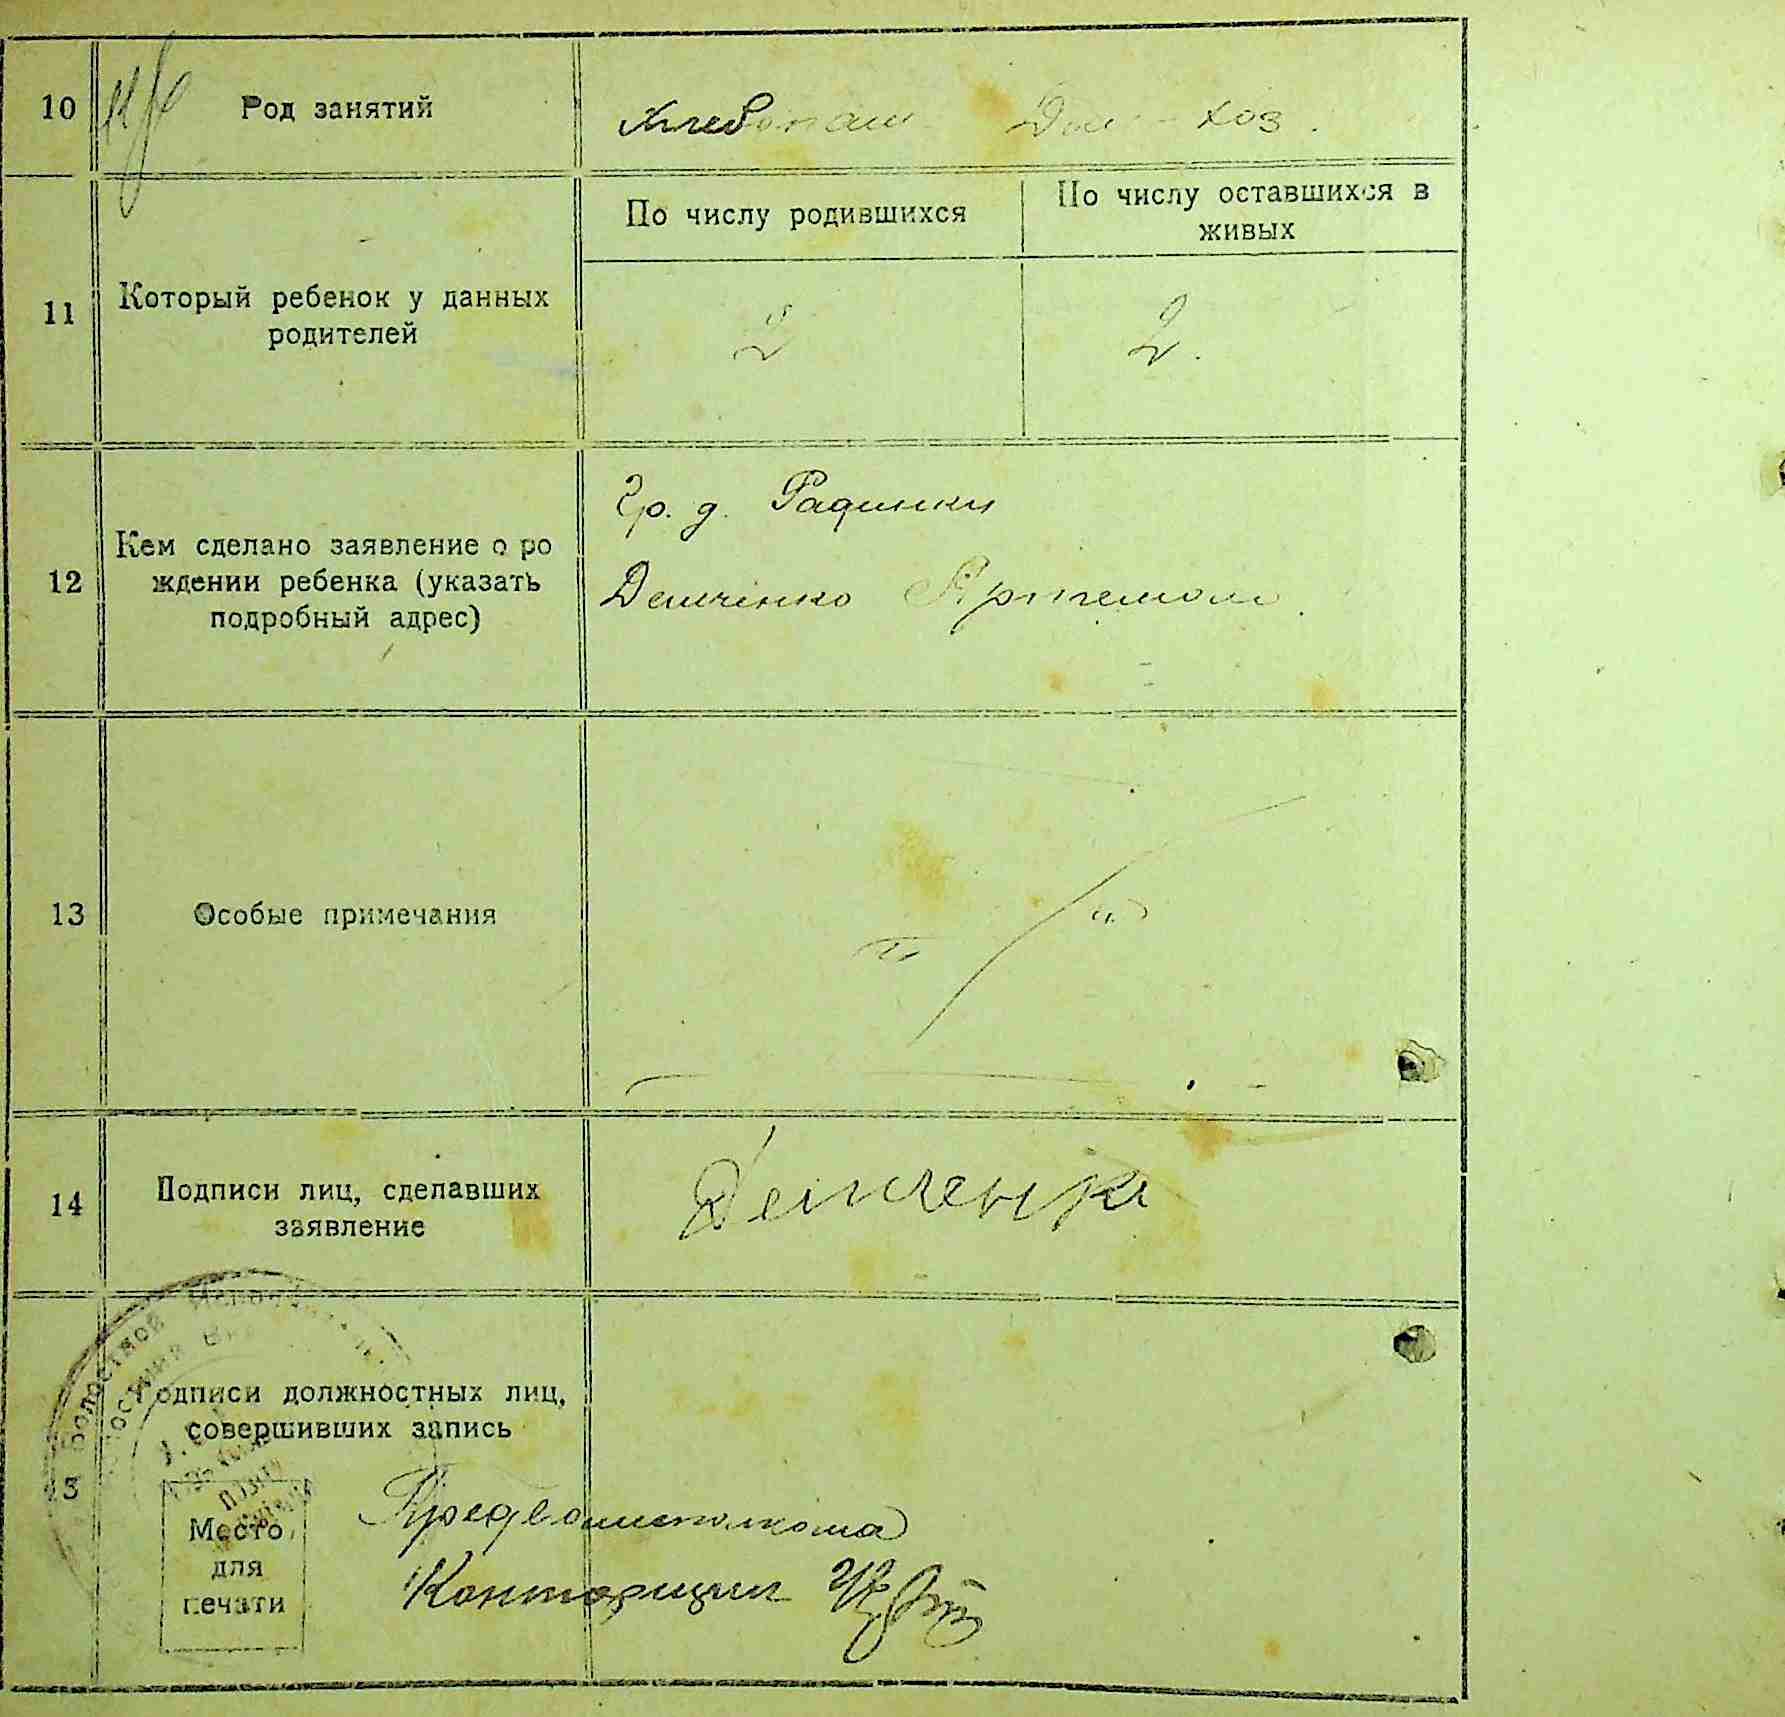 10 Род занятий Хлебопаш Дом-хоз.
По числу родившихся
По числу оставшихся в
живых
11 Который ребенок у данных
родителей
2 2.
12 Кем сделано заявление о ро
ждении ребенка (указать
подробный адрес)
Гр. д. Радинки
Демченко Артемом
13 Особые примечания
14 Подписи лиц, сделавших
заявление
Демченко
15 Подписи должностных лиц,
совершивших запись
Место
для
печати
Предволисполкома
Конторщик